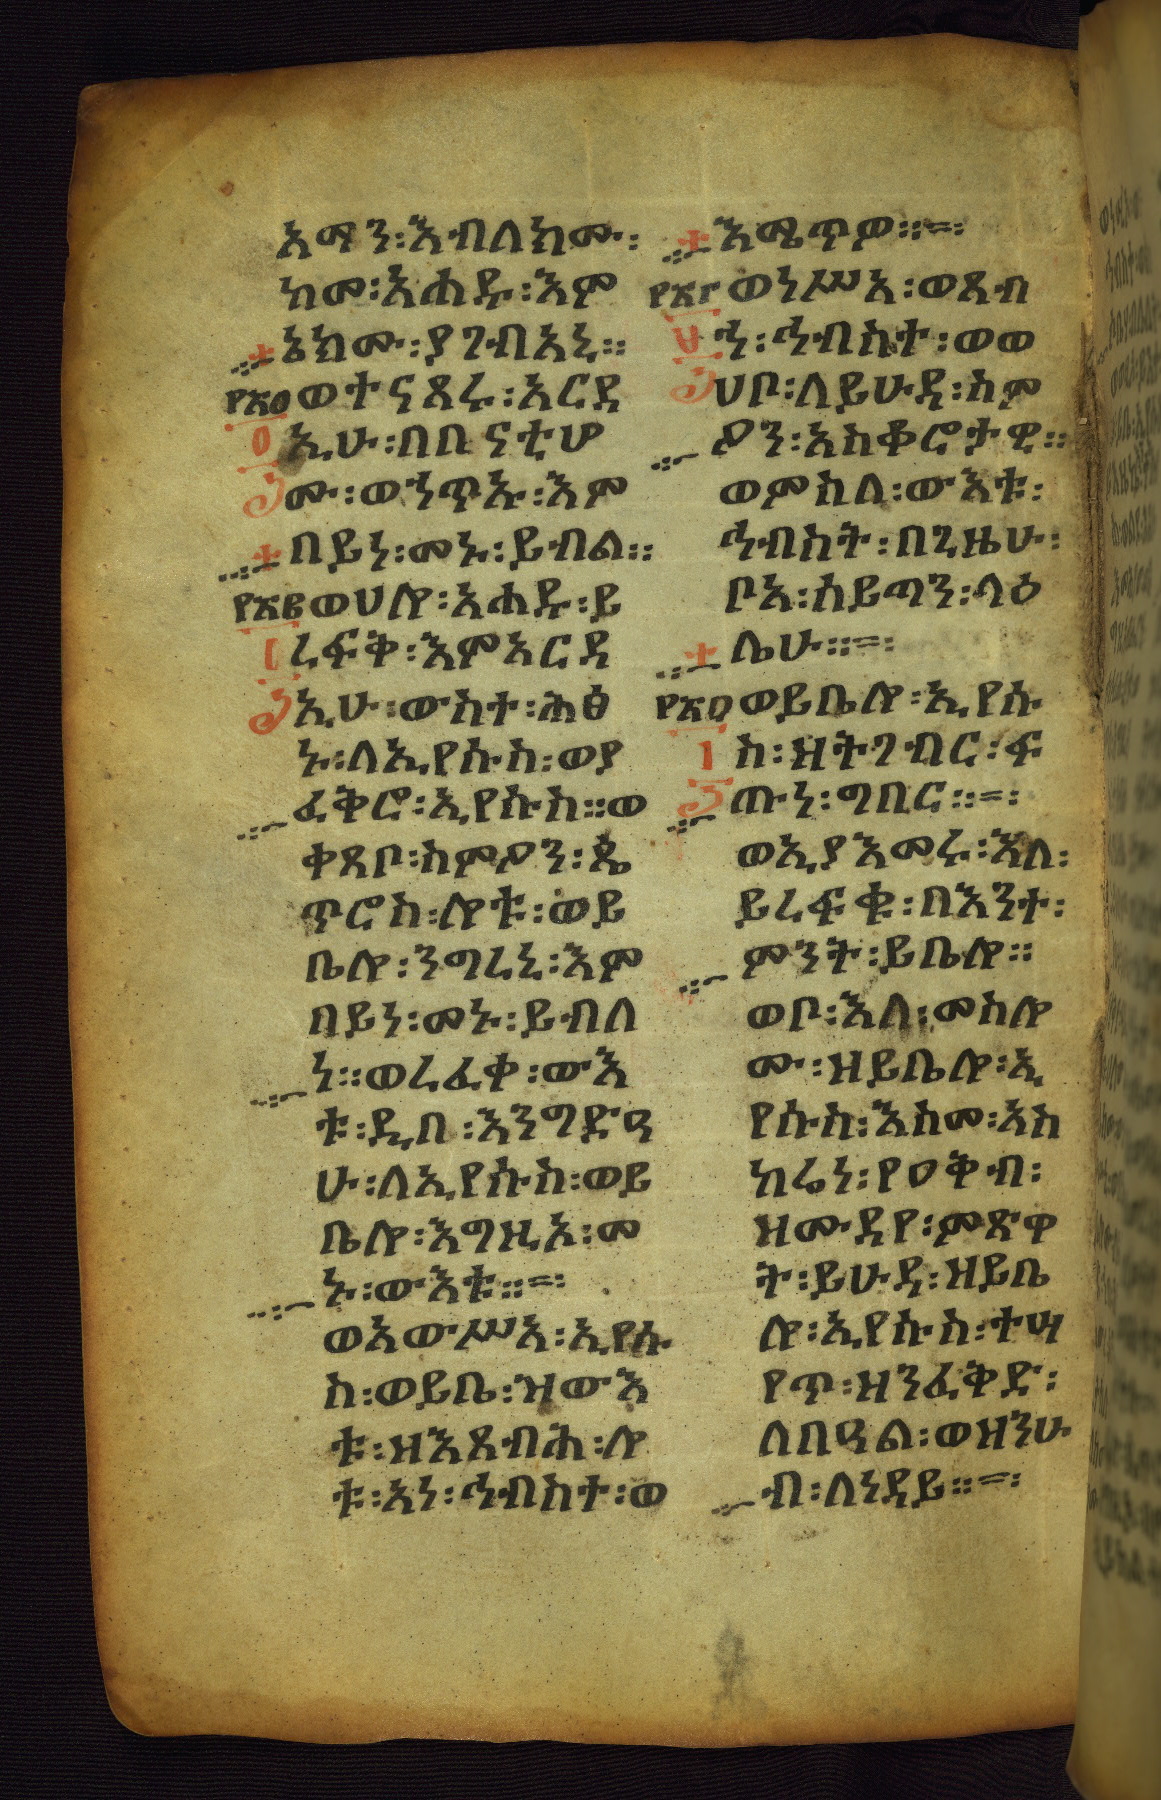 አማን፡እብለክሙ፡
ከመ፡አሐዱ፡እም
ኔክሙ፡ያገብአኒ።
ወተናጸሩ፡አርዳ
ኢሁ፡በበናቲሆ
ሙ፡ወኀጥኡ፡እም
በይነ፡መኑ፡ይብል።
ወሀሎ፡አሐዱ፡ይ
ረፍቅ፡እምአርዳ
ኢሁ፡ውስተ፡ሕፅ
ኑ፡ለኢየሱስ፡ወያ
ፈቅሮ፡ኢየሱስ።ወ
ቀጸቦ፡ስምዖን፡ጴ
ጥሮስ፡ሎቱ፡ወይ
ቤሎ፡ንግረኒ፡እም
በይነ፡መኑ፡ይብለ
ነ።ወረፈቀ፡ውእ
ቱ፡ዲበ፡እንግድዓ
ሁ፡ለኢየሱስ፡ወይ
ቤሎ፡እግዚኦ፡መ
ኑ፡ውእቱ።=፡
ወአውሥአ፡ኢየሱ
ስ፡ወይቤ፡ዝውእ
ቱ፡ዘእጸብሕ፡ሎ
ቱ፡አነ፡ኅብስተ፡ወ
እሜጥዎ።=፡
ወነሥአ፡ወጸብ
ኀ፡ኅብስተ፡ወወ
ሀቦ፡ለይሁዳ፡ስም
ዖን፡አስቆሮታዊ።
ወምስለ፡ውእቱ፡
ኅብስት፡በጊዜሁ፡
ቦአ፡ሰይጣን፡ላዕ
ሌሁ።=፡
ወይቤሎ፡ኢየሱ
ስ፡ዘትገብር፡ፍ
ጡነ፡ግበር።=፡
ወኢያእመሩ፡እለ፡
ይረፍቁ፡በእንተ፡
ምንት፡ይቤሎ።
ወቦ፡እለ፡መሰሎ
ሙ፡ዘይቤሎ፡ኢ
የሱስ፡እስመ፡አስ
ከሬነ፡የዐቅብ፡
ዝሙዳየ፡ምጽዋ
ት፡ይሁዳ፡ዘይቤ
ሎ፡ኢየሱስ፡ተሣ
የጥ፡ዘንፈቅድ፡
ለበዓል፡ወዘንሁ
ብ፡ለነዳይ።=፡